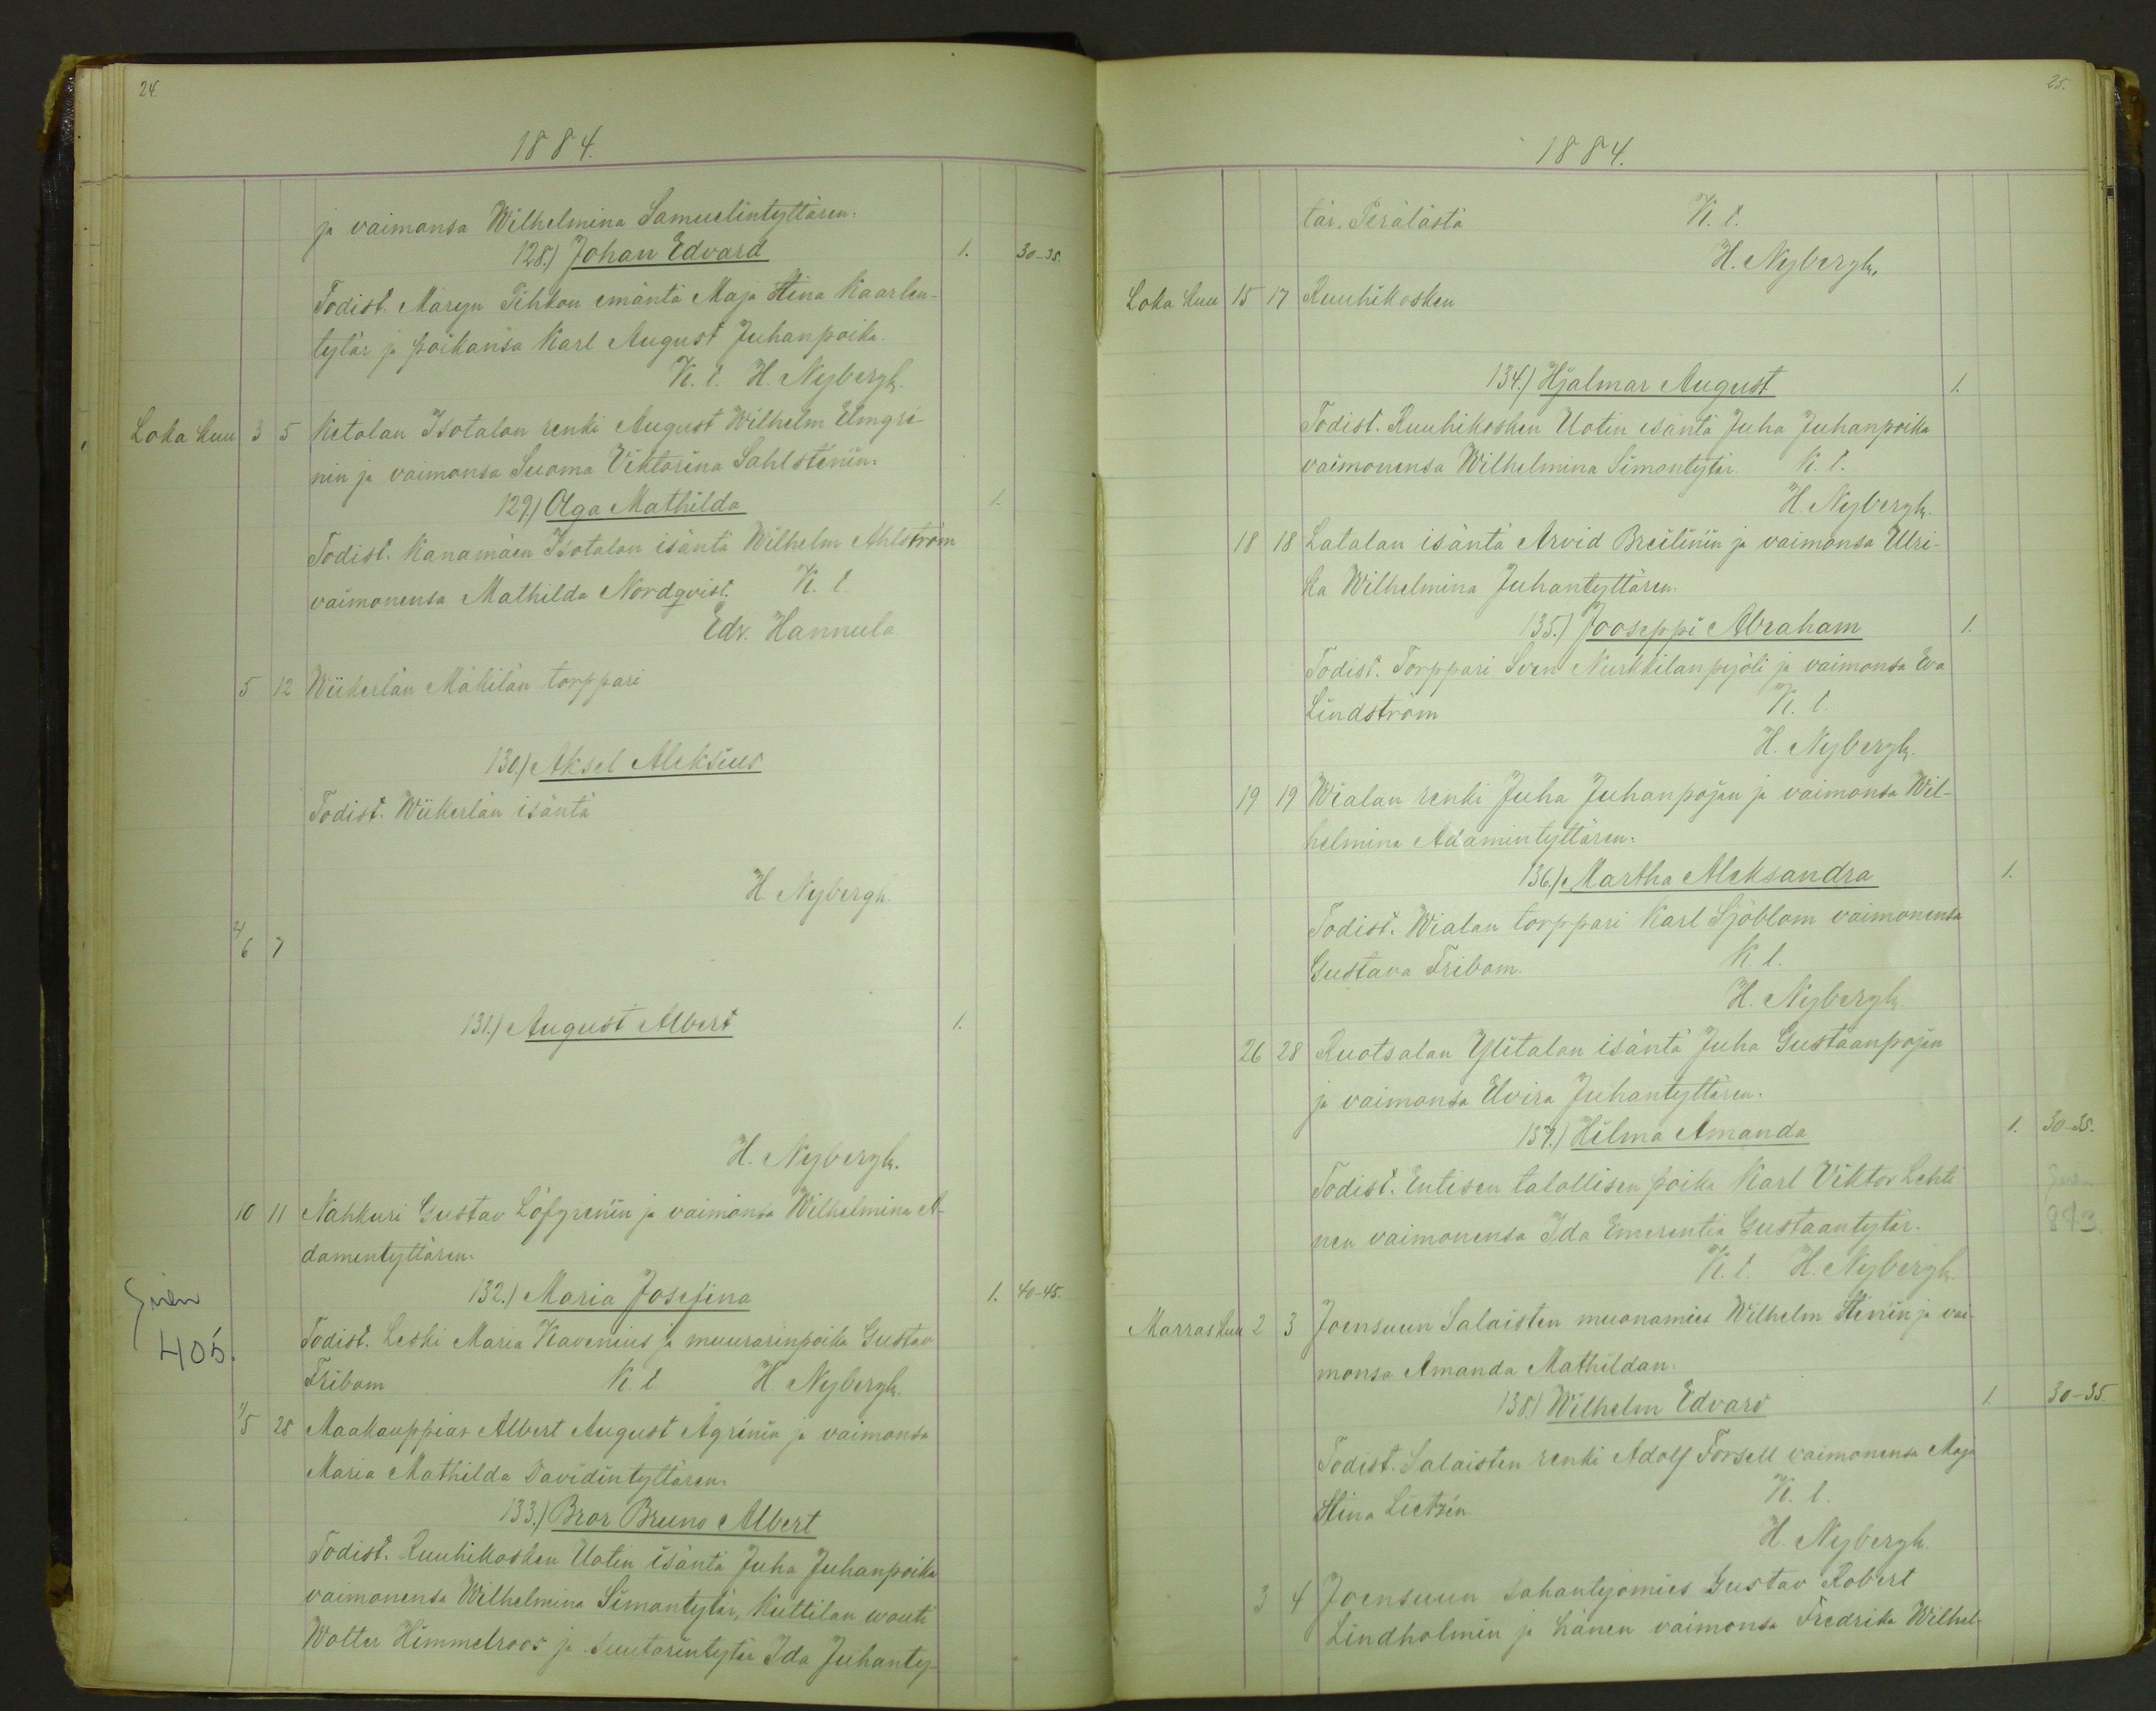 24.
1884.
ja vaimonsa Wilhelmina Samuelintyttären:
128.) Johan Edvard 1. 30-35.
Todist. Maryn Pihkon emäntä Maja Stina Kaarlen-
tytär ja poikansa Karl August Juhanpoika.
K. l. H. Nybergh.
Loka kuu 3 5 Ketolan Isotalon renki August Wilhelm Elmgre-
nin ja vaimonsa Suoma Viktorina Sahlstenin:
129.) Olga Mathilda 1.
Todist. Kanamäen Isotalon isäntä Wilhelm Ahlström
vaimonensa Mathilda Nordqvist. K. l.
Edv. Hannula
5 12 Wiikerlän Mäkilän torppari
130.) Aksel Aleksius
Todist. Wiikerlän isäntä
H. Nybergh.
6 7
131.) August Albert 1.
H. Nybergh.
10 11 Nahkuri Gustav Löfgrenin ja vaimonsa Wilhelmina A-
damentyttären:
132.) Maria Josefina 1. 40-45.
405.
Todist. Leski Maria Kavenius ja muurarinpoika Gustav
Fribom K. l. H. Nybergh.
5 28 Maakauppias Albert August Ågrénin ja vaimonsa
Maria Mathilda Davidintyttären:
133.) Bror Bruno Albert
Todist. Ruuhikosken Uotin isäntä Juha Juhanpoika
vaimonensa Wilhelmina Simontytär, Kuttilan wouti
Wolter Himmelroos ja Suutarintytär Ida Juhanty-
25.
1884.
tär. Perälästä K. l.
H. Nybergh.
Loka kuu 15 17 Ruuhikosken
134.) Hjalmar August 1.
Todist. Ruuhikosken Uotin isäntä Juha Juhanpoika
vaimonensa Wilhelmina Simontytär. K. l.
H. Nybergh.
18 18 Latalan isäntä Arvid Breilinin ja vaimonsa Ulri-
ka Wilhelmina Juhantyttären:
135.) Jooseppi Abraham 1.
Todist. Torppari Sven Nurkkilanpyöli ja vaimonsa Eva
Lindström K. l.
H. Nybergh.
19 19 Wialan renki Juha Juhanpojan ja vaimonsa Wil-
helmina Adamintyttären:
136.) Martha Aleksandra 1.
Todist. Wialan torppari Karl Sjöblom vaimonensa
Gustava Fribom. K l.
H. Nybergh.
26 28 Ruotsalan Ylitalon isäntä Juha Gustaanpojan
ja vaimonsa Elvira Juhantyttären.
137.) Hilma Amanda 1. 30-35.
Todist. Entisen talollisen poika Karl Viktor Lehti-
nen vaimonensa Ida Emerentia Gustaantytär.
K. l. H. Nybergh.
Marraskuu 2 3 Joensuun Salaisten muonamies Wilhelm Stenin ja vai-
monsa Amanda Mathildan:
138.) Wilhelm Edvard 1. 30-35.
Todist. Salaisten renki Adolf Forsell vaimonensa Maja
Stina Lietzén. K. l.
H. Nybergh.
3 4 Joensuun sahantyömies Gustav Robert
Lindholmin ja hänen vaimonsa Fredrika Wilhel-